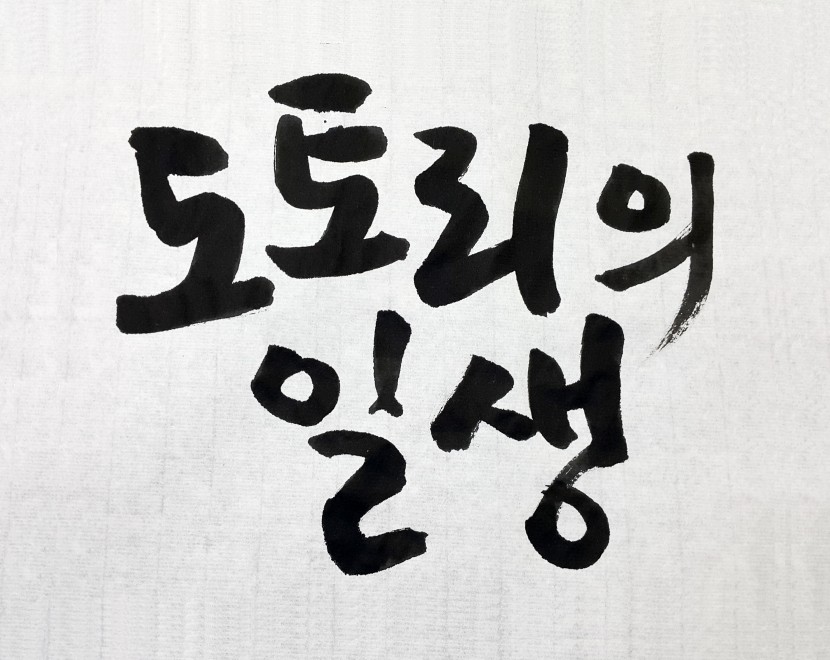 도토리의
일생